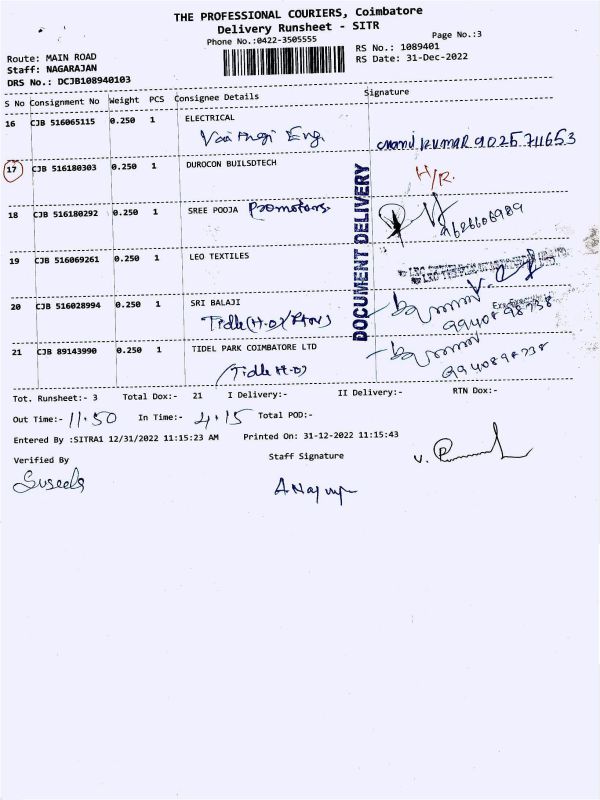 THE PROFESSIONAL COURIERS, Coimbatore
Delivery Runsheet - SITR
Phone No.:0422-3505555
Page No.:3
Route: MAIN ROAD
RS No.: 1089401
Staff: NAGARAJAN
RS Date: 31-Dec-2022
DRS No.: DCJB108940103
S No Consignment No Weight PCS Consignee Details Signature
16 CJB 516065115 0.250 1 ELECTRICAL
Eng.
9025711653
17 CJB 516180303 0.250 1 DUROCON BUILSDTECH
H/R.
18 CJB 516180292 0.250 1 SREE POOJA Promotors
9626606989
DOCUMENT DELIVERY
19 CJB 516069261 0.250 1 LEO TEXTILES
20 CJB 516028994 0.250 1 SRI BALAJI
9940898738
21 CJB 89143990 0.250 1 TIDEL PARK COIMBATORE LTD
(Tidle H.O)
9940898738
Tot. Runsheet:- 3 Total Dox:- 21 I Delivery:- II Delivery:- RTN Dox:-
Out Time:- 11.50 In Time:- 4.15 Total POD:-
Entered By :SITRA1 12/31/2022 11:15:23 AM Printed On: 31-12-2022 11:15:43
Verified By Staff Signature
Suseela